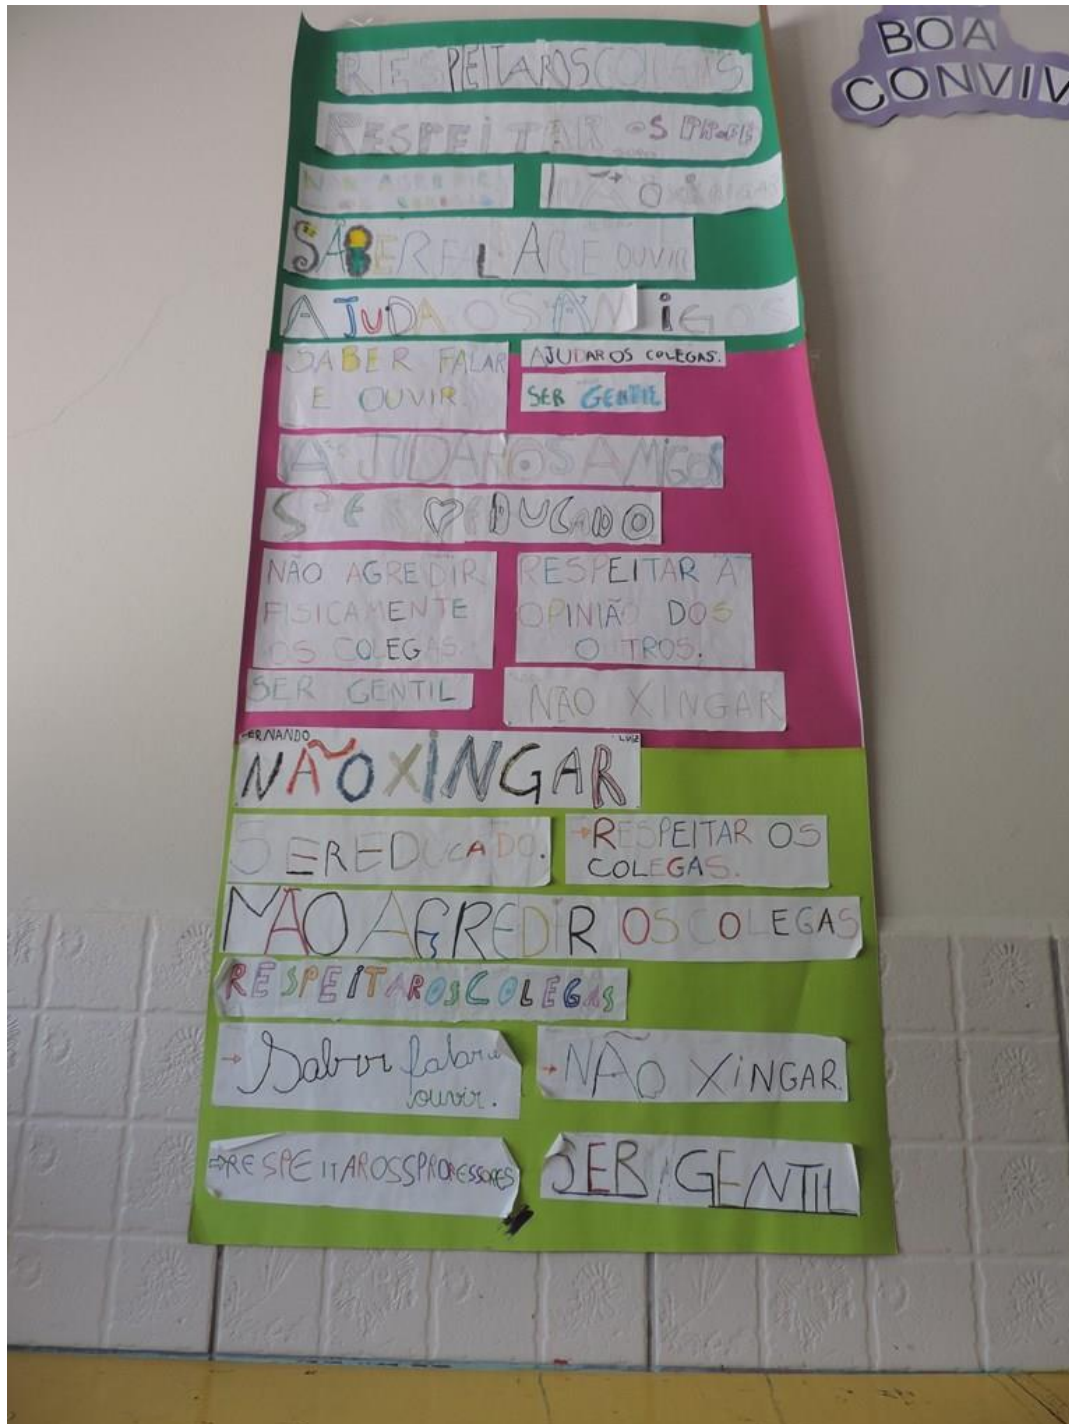 BOA
CONVIV
RESPEITAR OS COLEGAS
RESPEITAR OS PROFE
NÃO AGREDIR
NÃO BRIGAS
SABER FALAR E OUVIR
AJUDA OS AMIGOS
SABER FALAR
E OUVIR.
AJUDAR OS COLEGAS.
SER GENTIL
AJUDAR OS AMIGOS
SER EDUCADO
NÃO AGREDIR
FISICAMENTE
OS COLEGAS.
RESPEITAR A
OPINIÃO DOS
OUTROS.
SER GENTIL
NÃO XINGAR
ERNANDO
LUIZ
NÃO XINGAR
SER EDUCADO.
→RESPEITAR OS
COLEGAS.
NÃO AGREDIR OS COLEGAS
RESPEITAR OS COLEGAS
→ Saber falar e
ouvir.
→NÃO XINGAR.
⇒RESPEITAR OSS PROFESSORES
SER GENTIL